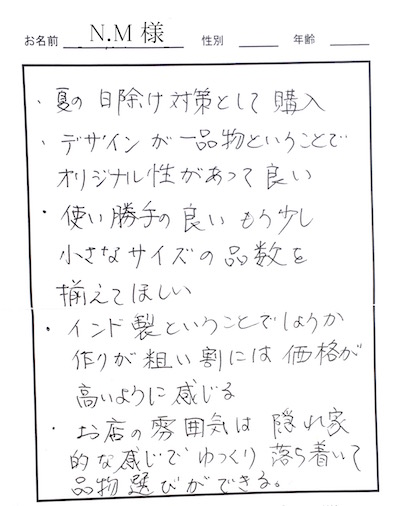 お名前 N.M 様 性別 年齢
・夏の日除け対策として購入
・デザインが一品物ということで
オリジナル性があって良い
・使い勝手の良いもう少し
小さなサイズの品数を
揃えてほしい
・インド製ということでしょうか
作りが粗い割には価格が
高いように感じる
・お店の雰囲気は隠れ家
的な感じでゆっくり落ち着いて
品物選びができる。
ご協力